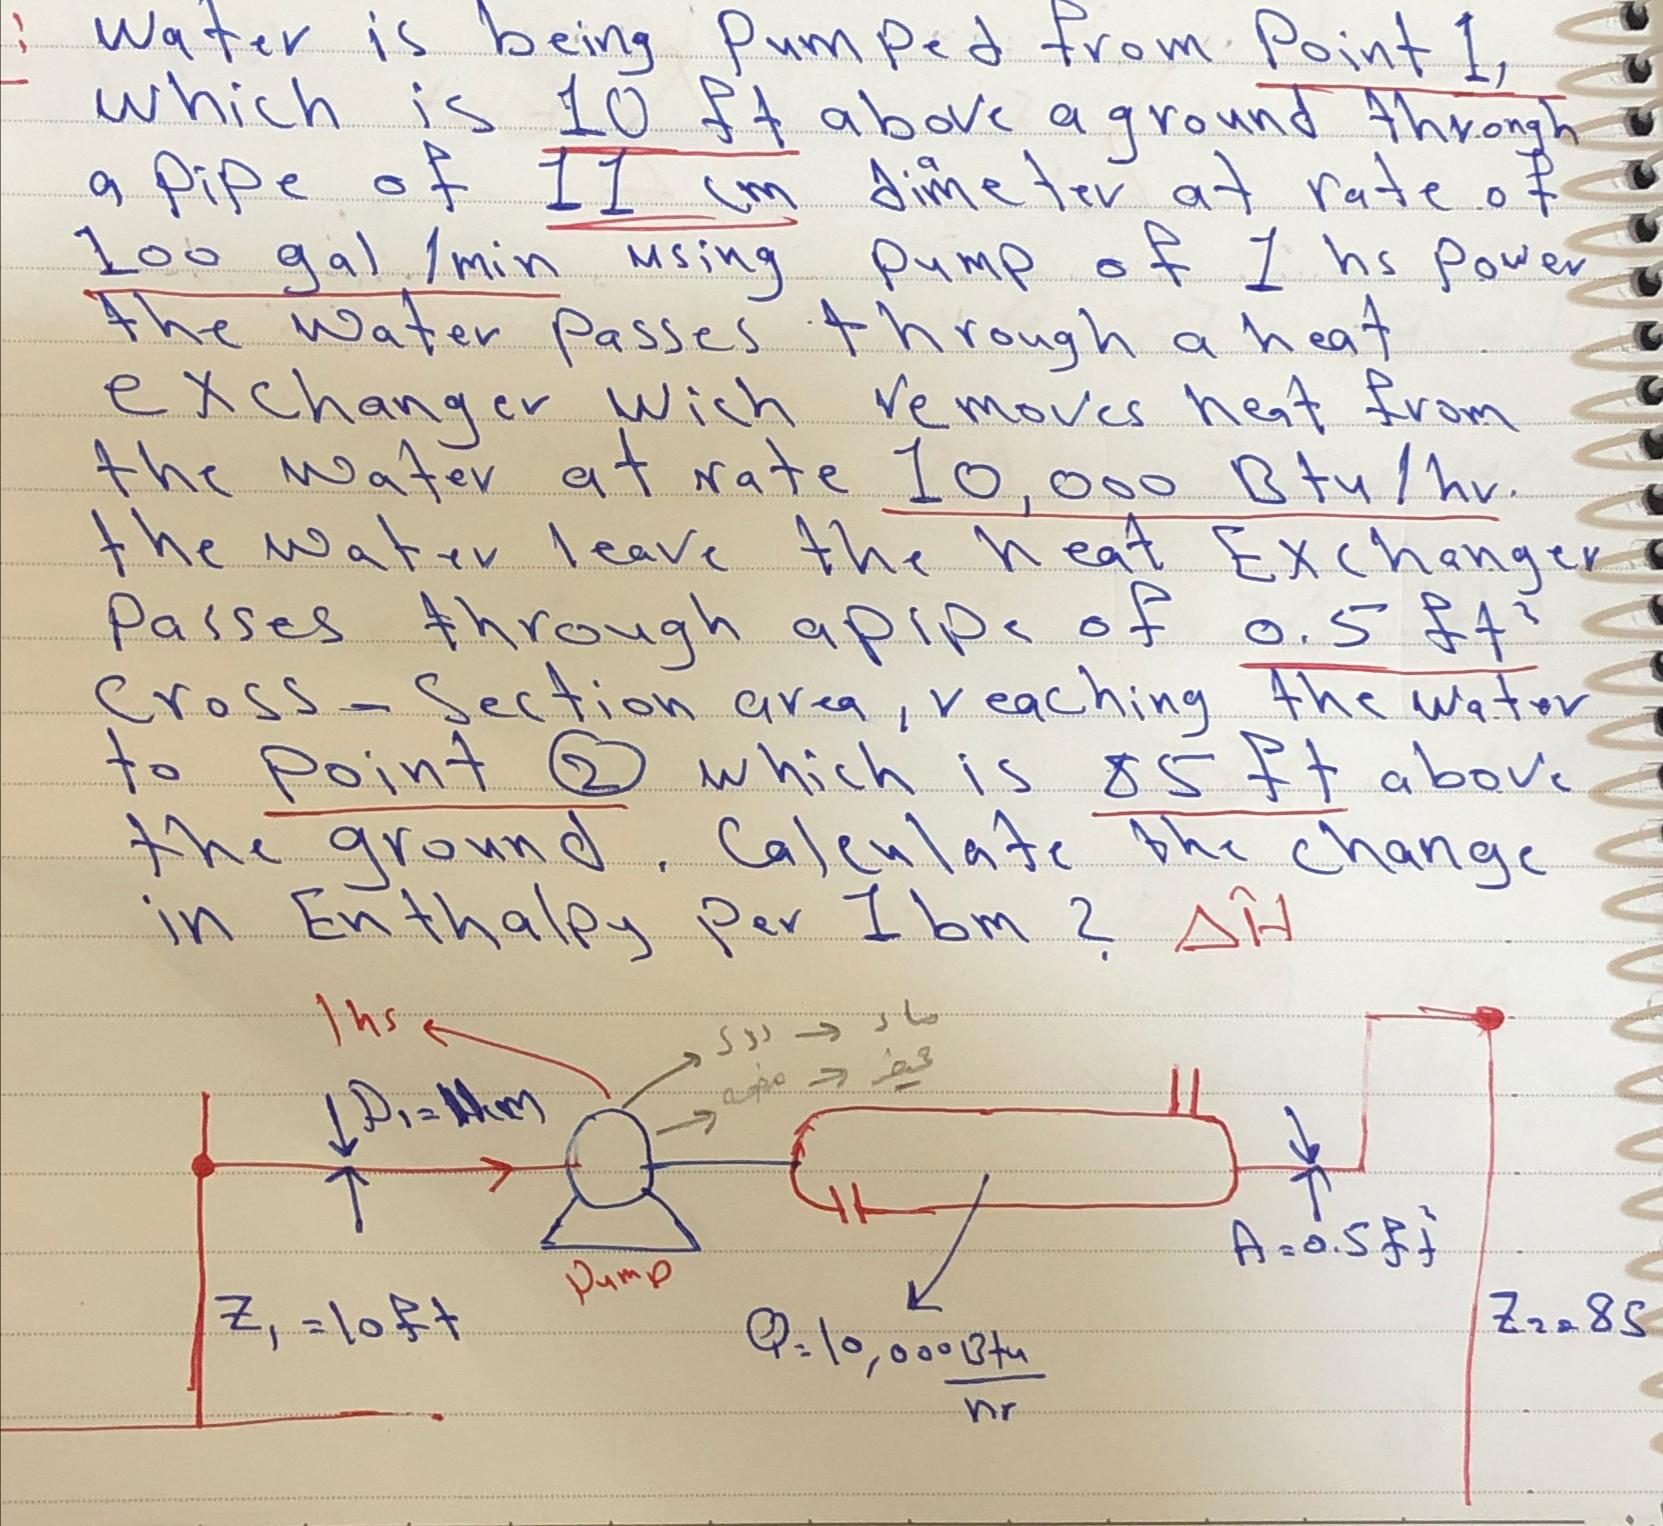 Water is being Pumped from Point 1,
which is 10 ft above a ground through
a pipe of 11 cm diameter at rate of
100 gal/min using pump of 1 hs power
the water passes through a heat
exchanger wich removes heat from
the water at rate 10,000 Btu/hr.
the water leave the heat Exchanger
Passes through a pipe of 0.5 ft²
Cross-Section area, reaching the water
to point ② which is 85 ft above
the ground. Calculate the change
in Enthalpy per Ibm? ΔĤ
1hs
D₁=11cm
pump
Z₁=10ft
Q=10,000 Btu/hr
A=0.5ft²
Z₂=85